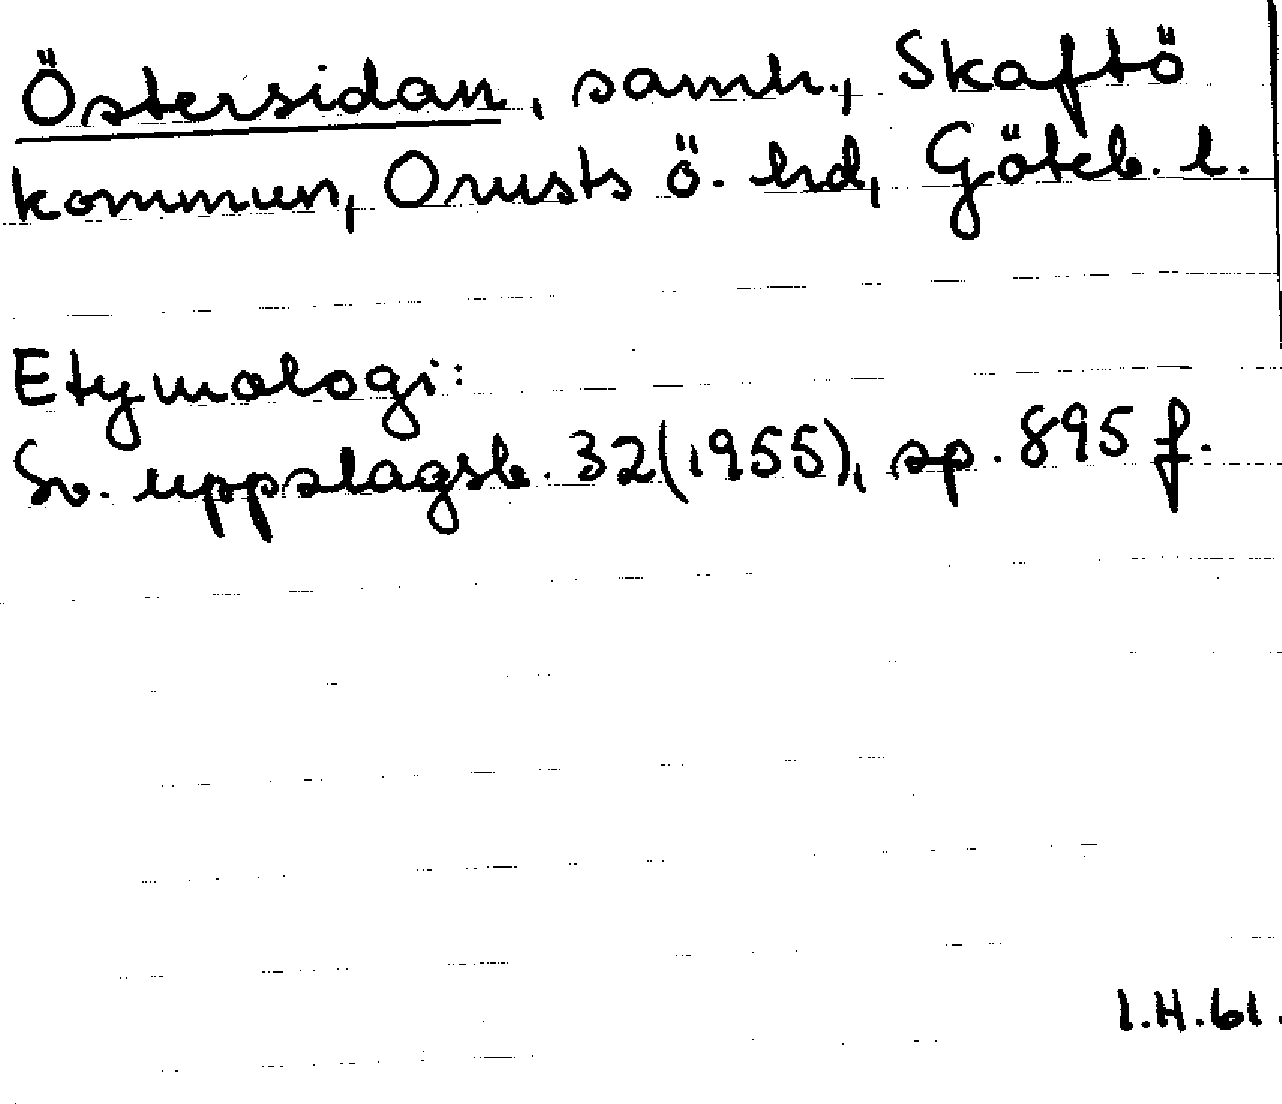 Östersidan, samh., Skaftö
kommun, Orusts ö. hd, Göteb. l.
Etymologi:
Sv. uppslagsb. 32(1955), sp. 895 f.
I.H.61.